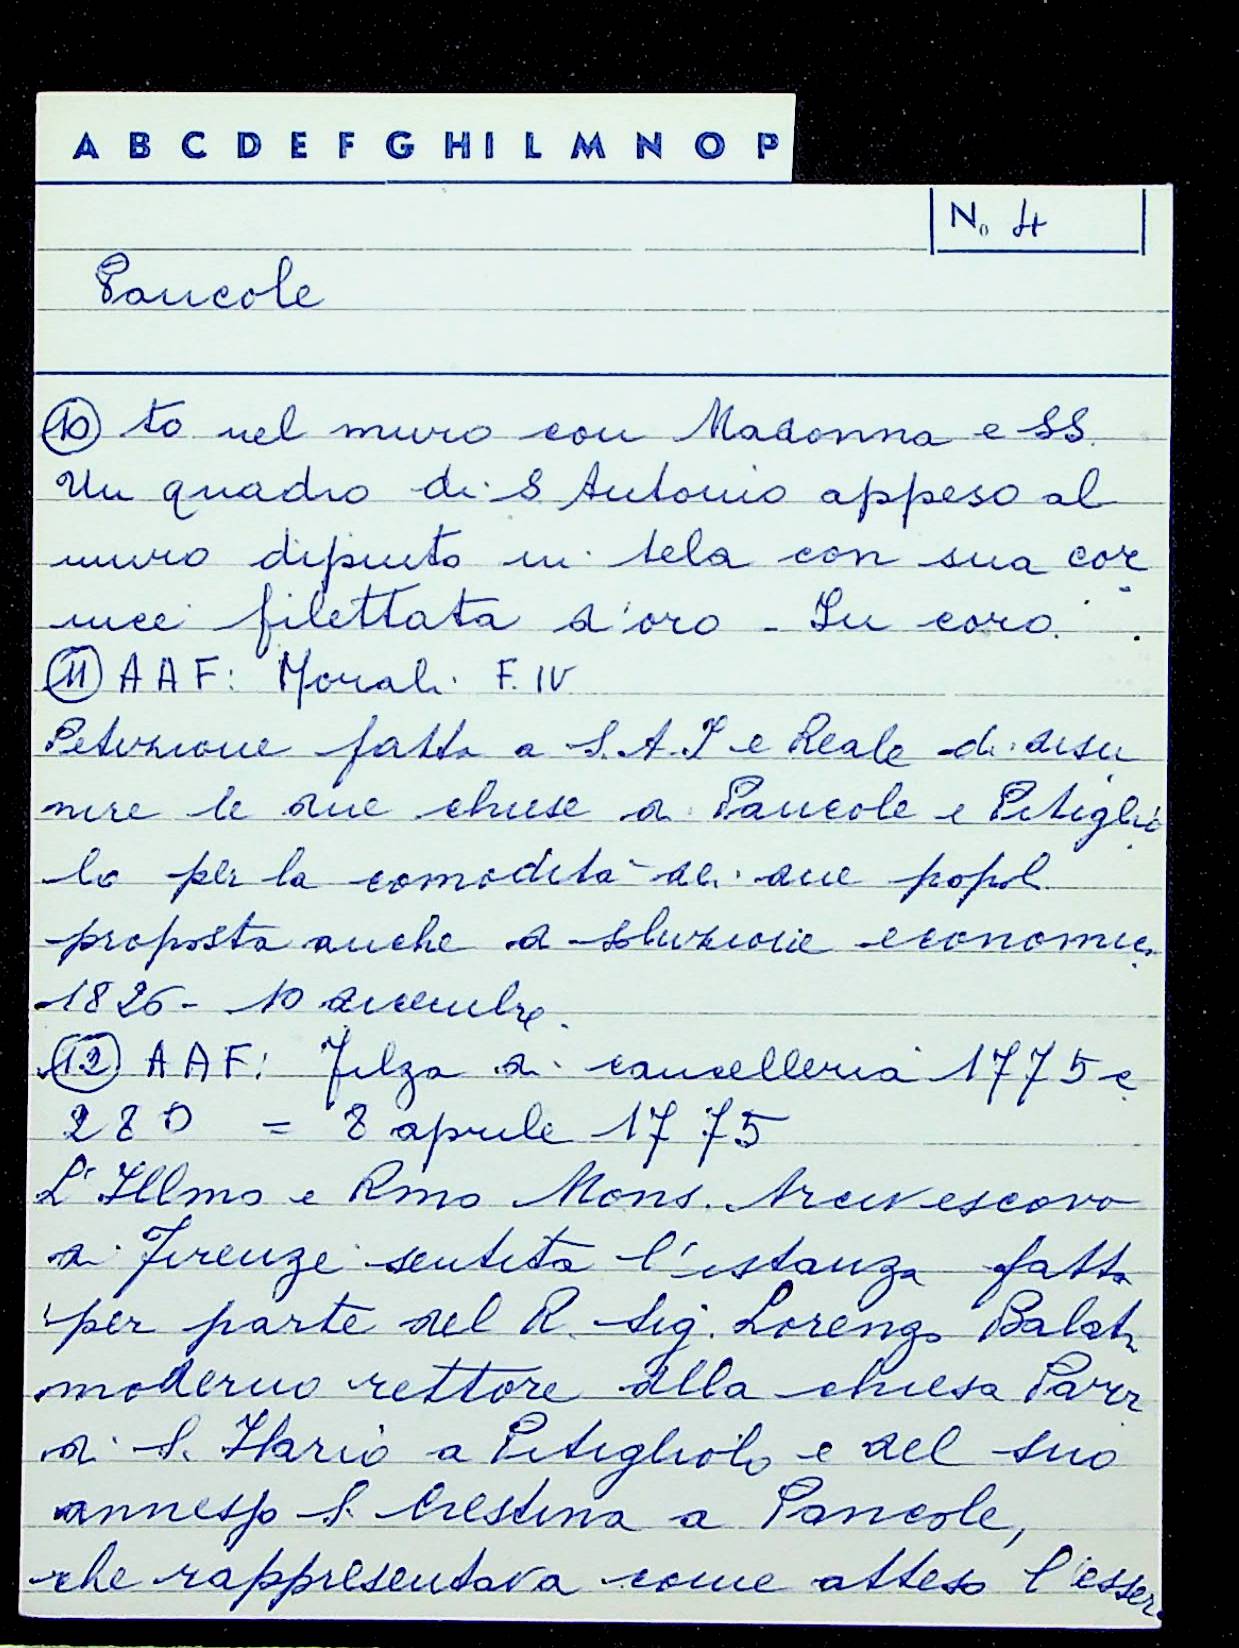 A B C D E F G H I L M N O P
No 4
Pancole
10 to nel muro con Madonna e SS.
Un quadro di S Antonio appeso al
muro dipinto in tela con sua cor
nice filettata d'oro - In coro.
11 AAF: Morali F. IV
Petizione fatta a S.A.I e Reale di disu
nire le due chiese di Pancole e Pitiglio
lo per la comodità dei due popoli
proposta anche di soluzione economica
1826 - 10 dicembre.
12 AAF: Filza di cancelleria 1775 c
280 = 8 aprile 1775
L'Illmo e Rmo Mons. Arcivescovo
di Firenze sentita l'istanza fatta
per parte del R. Sig. Lorenzo Balati
moderno rettore della chiesa Parr
di S. Ilario a Pitigliolo e del suo
annesso S. Cristina a Pancole,
che rappresentava come atteso l'esser